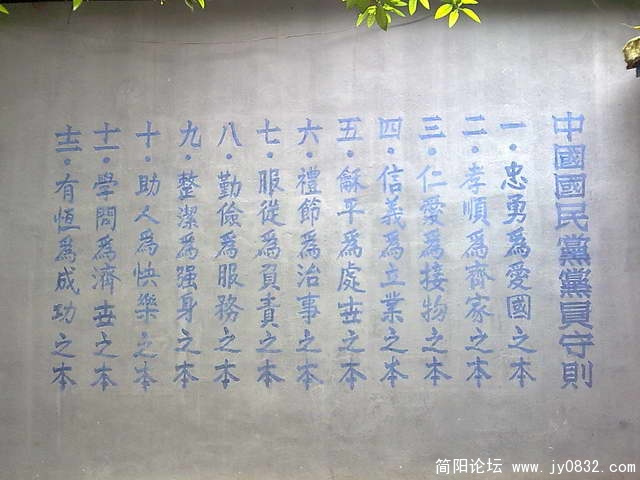 中國國民黨黨員守則
一·忠勇爲愛國之本
二·孝順爲齊家之本
三·仁愛爲接物之本
四·信義爲立業之本
五·龢平爲處世之本
六·禮節爲治事之本
七·服從爲負責之本
八·勤儉爲服務之本
九·整潔爲强身之本
十·助人爲快樂之本
十一·學問爲濟世之本
十二·有恆爲成功之本
简阳论坛 www.jy0832.com